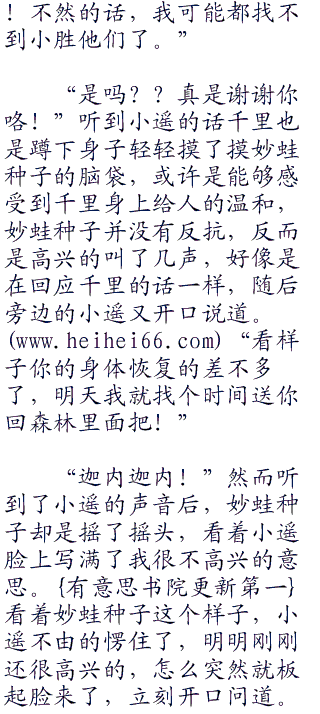 ！不然的话，我可能都找不
到小胜他们了。”
“是吗？？真是谢谢你
咯！”听到小遥的话千里也
是蹲下身子轻轻摸了摸妙蛙
种子的脑袋，或许是能够感
受到千里身上给人的温和，
妙蛙种子并没有反抗，反而
是高兴的叫了几声，好像是
在回应千里的话一样，随后
旁边的小遥又开口说道。
(www.heihei66.com)“看样
子你的身体恢复的差不多
了，明天我就找个时间送你
回森林里面把！”
“迦内迦内！”然而听
到了小遥的声音后，妙蛙种
子却是摇了摇头，看着小遥
脸上写满了我很不高兴的意
思。{有意思书院更新第一}
看着妙蛙种子这个样子，小
遥不由的愣住了，明明刚刚
还很高兴的，怎么突然就板
起脸来了，立刻开口问道。